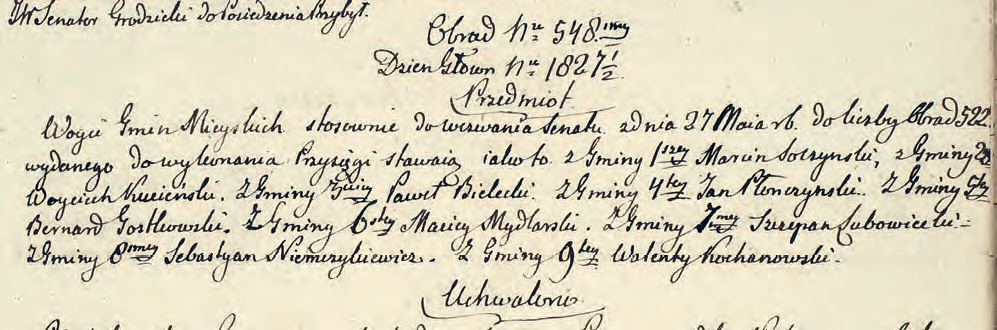 JW Senator Grodzicki do Posiedzenia Przybył.
Obrad Nrę 548.mey
Dzien: Główn Nrę 1827 1/2
Przedmiot.
Wogći Gmin Mieyskich stosownie do wezwania Senatu zdnia 27 Maia rb. do liczby Obrad 522
wydanego do wykonania Przysięgi stawaią iako to z Gminy 1szey Marcin Soczynski, z Gminy 2r
Woyciech Kucienski. z Gminy 3ciey Paweł Bielecki. z Gminy 4tey Jan Płonczynski. z Gminy 5tey
Bernard Gostkowski. Z Gminy 6stey Maciey Mydlarski. Z Gminy 7mey Szczepan Lubowiecki.
z Gminy 8mey Sebastyan Niemczykiewicz. Z Gminy 9tey Walenty Kochanowski.
Uchwalono